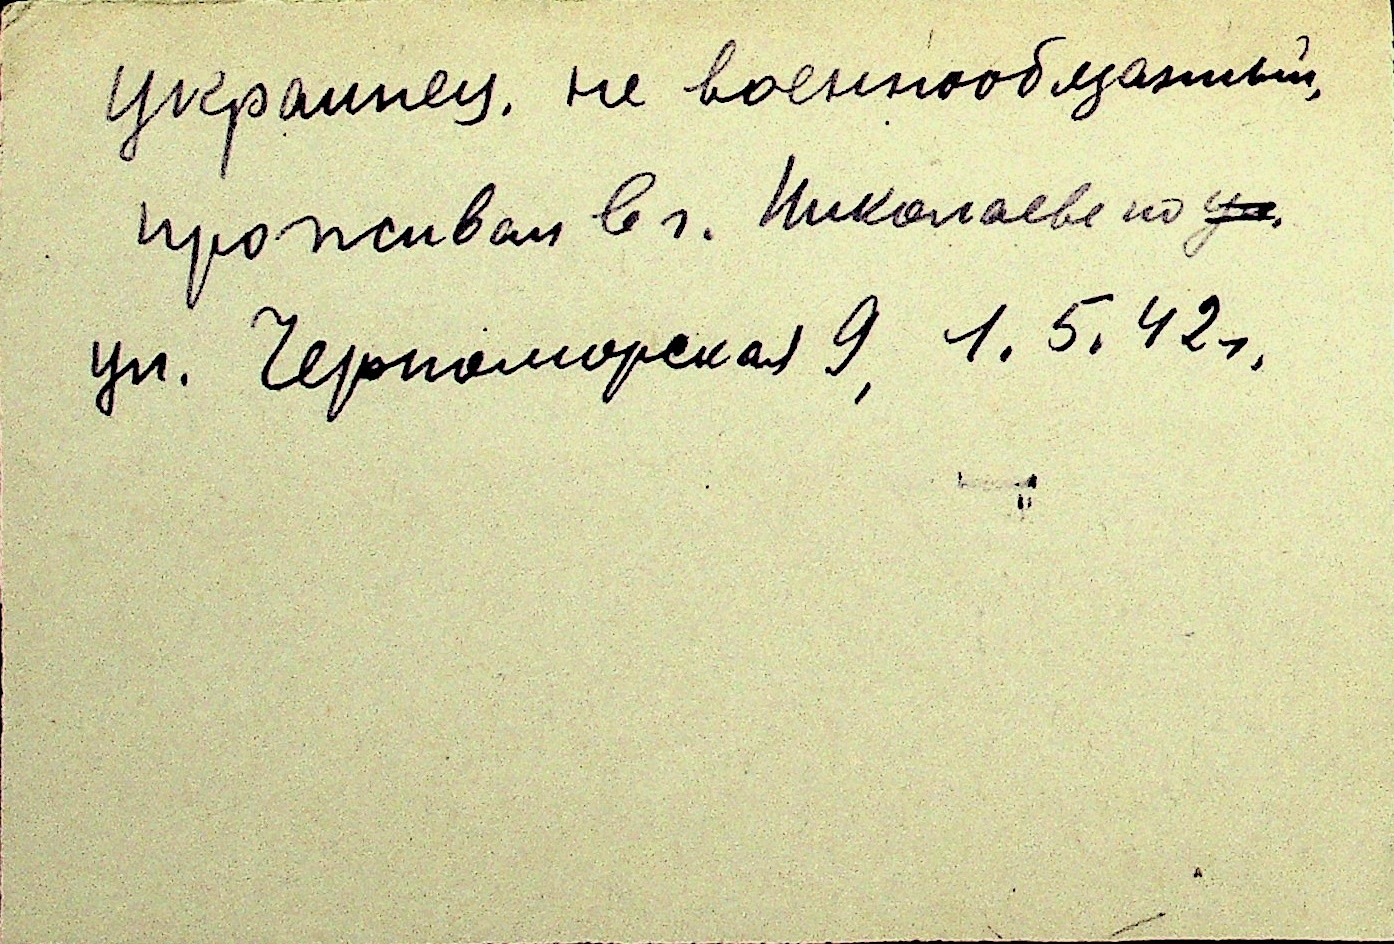 украинец. не военнообязанный,
проживал в г. Николаеве по ул.
ул. Черноморская 9, 1.5.42г.